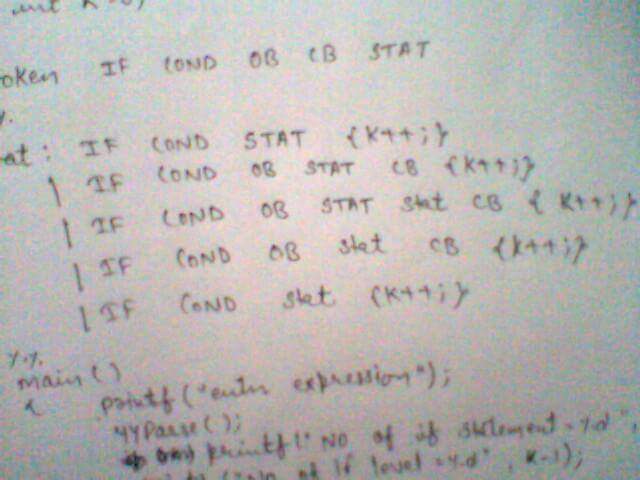 int k=0;
oken IF COND OB CB STAT
%.
at : IF COND STAT {K++;}
| IF COND OB STAT CB {K++;}
| IF COND OB STAT stat CB { K++;}
| IF COND OB stat CB {K++;}
| IF COND stat {K++;}
%.%.
main()
{ printf("entr expression");
yyparse();
printf(" NO of if statement = %d",
("No of if level = %d", K-1);